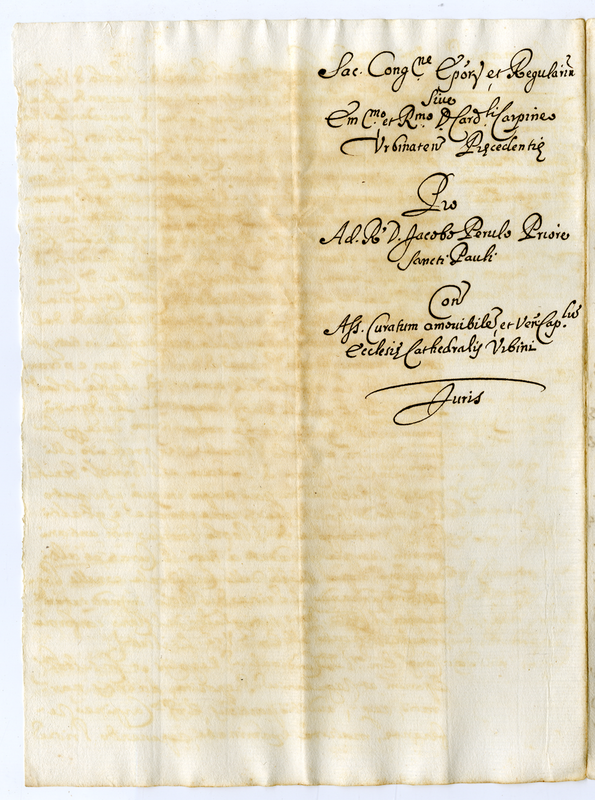 Sac. Cong.ne Epor) et Regulariu
Sive
Em.mo et R.mo D Card.li Carpineo
Urbinaten Pręcedentię
Pro
Ad. R. D. Jacobo Perulo Priore
Sancti Pauli
Con
Ass. Curatum amovibile, et Ven. Cap.lum
Ecclesię Cathedralis Urbini
Juris